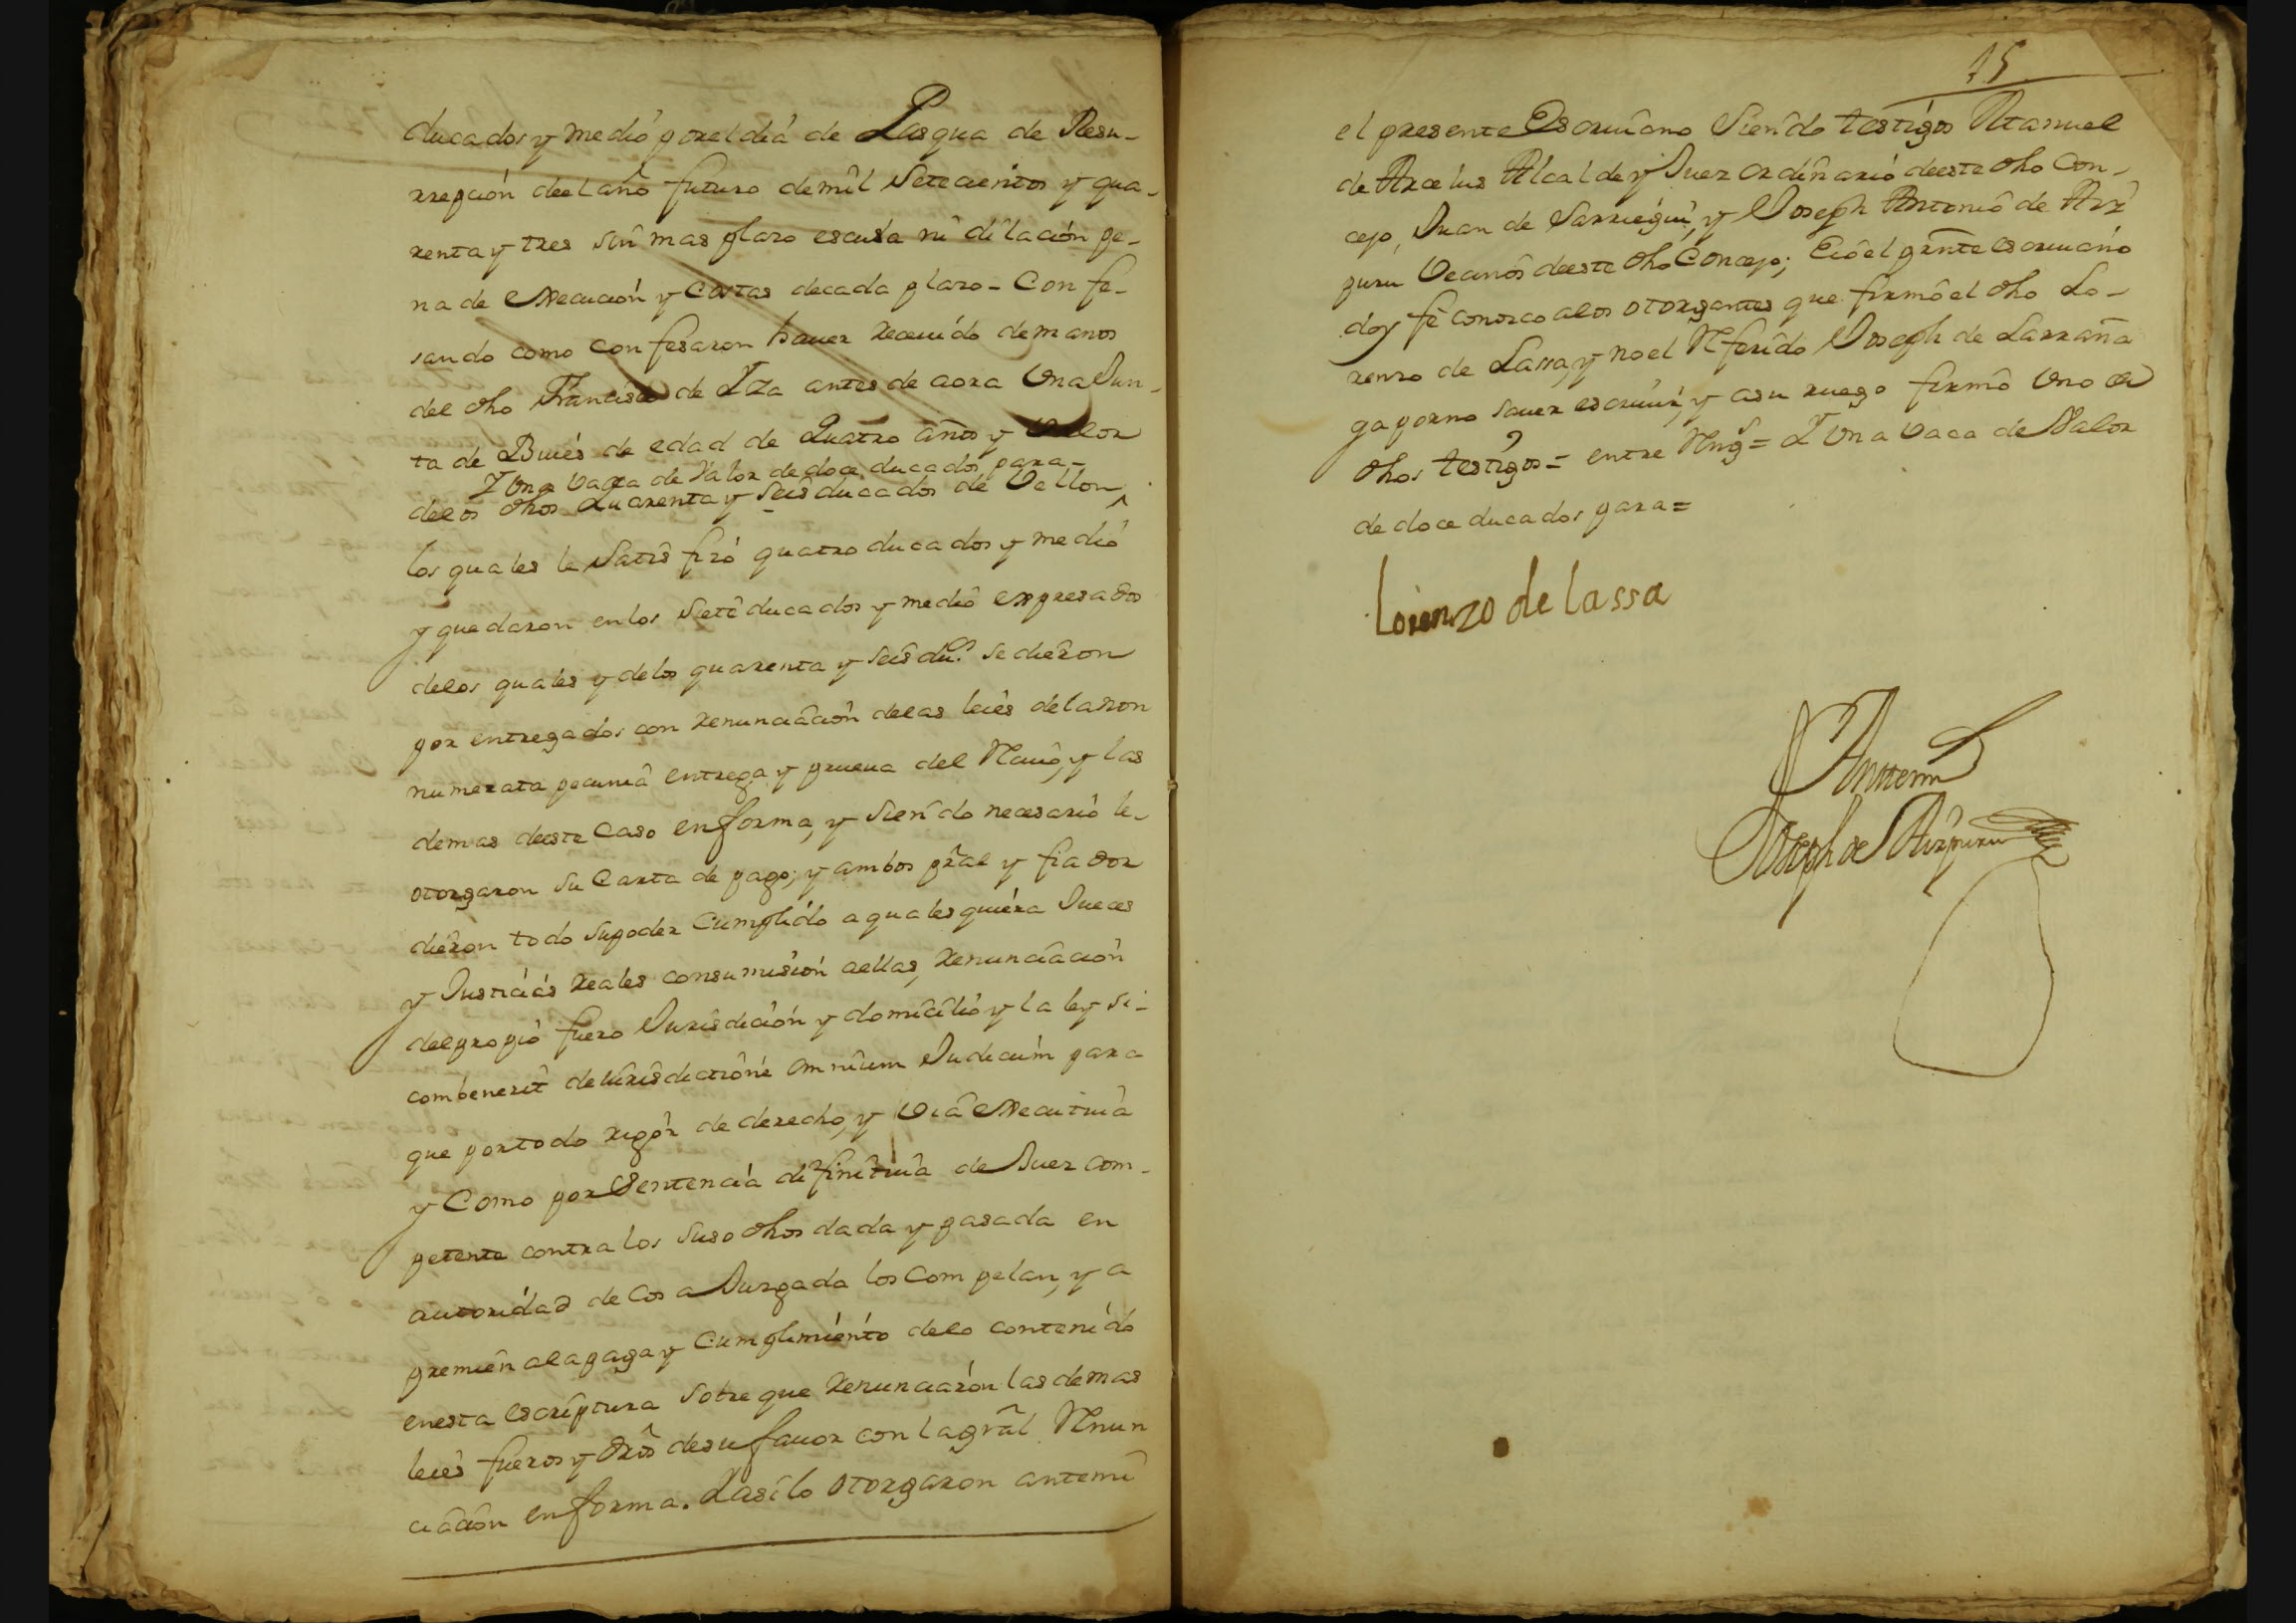 ducados y medio por el dia de Pasqua de Resu-
rrepcion deel año futuro de mil Setecientos y qua-
renta y tres sin mas plazo escusa ni dilacion pe-
na de execucion y Costas decada plazo - Confe-
sando como confesaron hauer receuido de manos
del dho Francisco de Yza antes de aora Una Jun-
ta de Bueis de edad de Quatro años y Valor
Y Una Vaca de Valor de doce ducados para-
delos dhos Quarenta y Seis ducados de Vellon ^
los quales le Satisfizo quatro ducados y medio
y quedaron en los Siete ducados y medio expresados
delos quales y delos quarenta y Seis du.s se dieron
por entregados con renunciacion delas leies dela non
numerata pecunia entrega y prueua del Reciuo, y las
demas deeste Caso en forma, y Siendo necesario le-
otorgaron su Carta de pago; y ambos pral y fiador
dieron todo supoder Cumplido a qualesquiera Jueces
y Justicias reales consumision aellas, renunciacion
delpropio fuero Jurisdicion y domicilio y la ley si-
combenerit de iurisdictione omnium Judicum para
que portodo rigor de derecho, y Via executiua
y Como por Sentencia difinitiua de Juez com-
petente contra los Suso dhos dada y pasada en
autoridad de Cosa Juzgada los Compelan, y a
premien alapaga y Cumplimiento delo contenido
enesta escriptura Sobre que renunciaron las demas
leies fueros y dros de su fauor con la gral Renun
ciacion en forma. Yasi lo otorgaron antemi
15
el presente Escriuano Siendo testigos Manuel
de Arcelus Alcalde y Juez ordinario deeste dho Con-
cejo, Juan de Sarriegui, y Joseph Antonio de Azp
puru Vecinos deeste dho Concejo; E io el prnte escriuano
doy fè conozco alos otorgantes que firmò el dho Lo-
renzo de Lassa, y no el Referido Joseph de Larraña
ga porno sauer escriuir, y asu ruego firmò Uno de
dhos testigos = entre Rengs = Y Una Vaca de Valor
de doce ducados para =
Lorenzo de lassa
Antemi
Joseph de Aizpuru